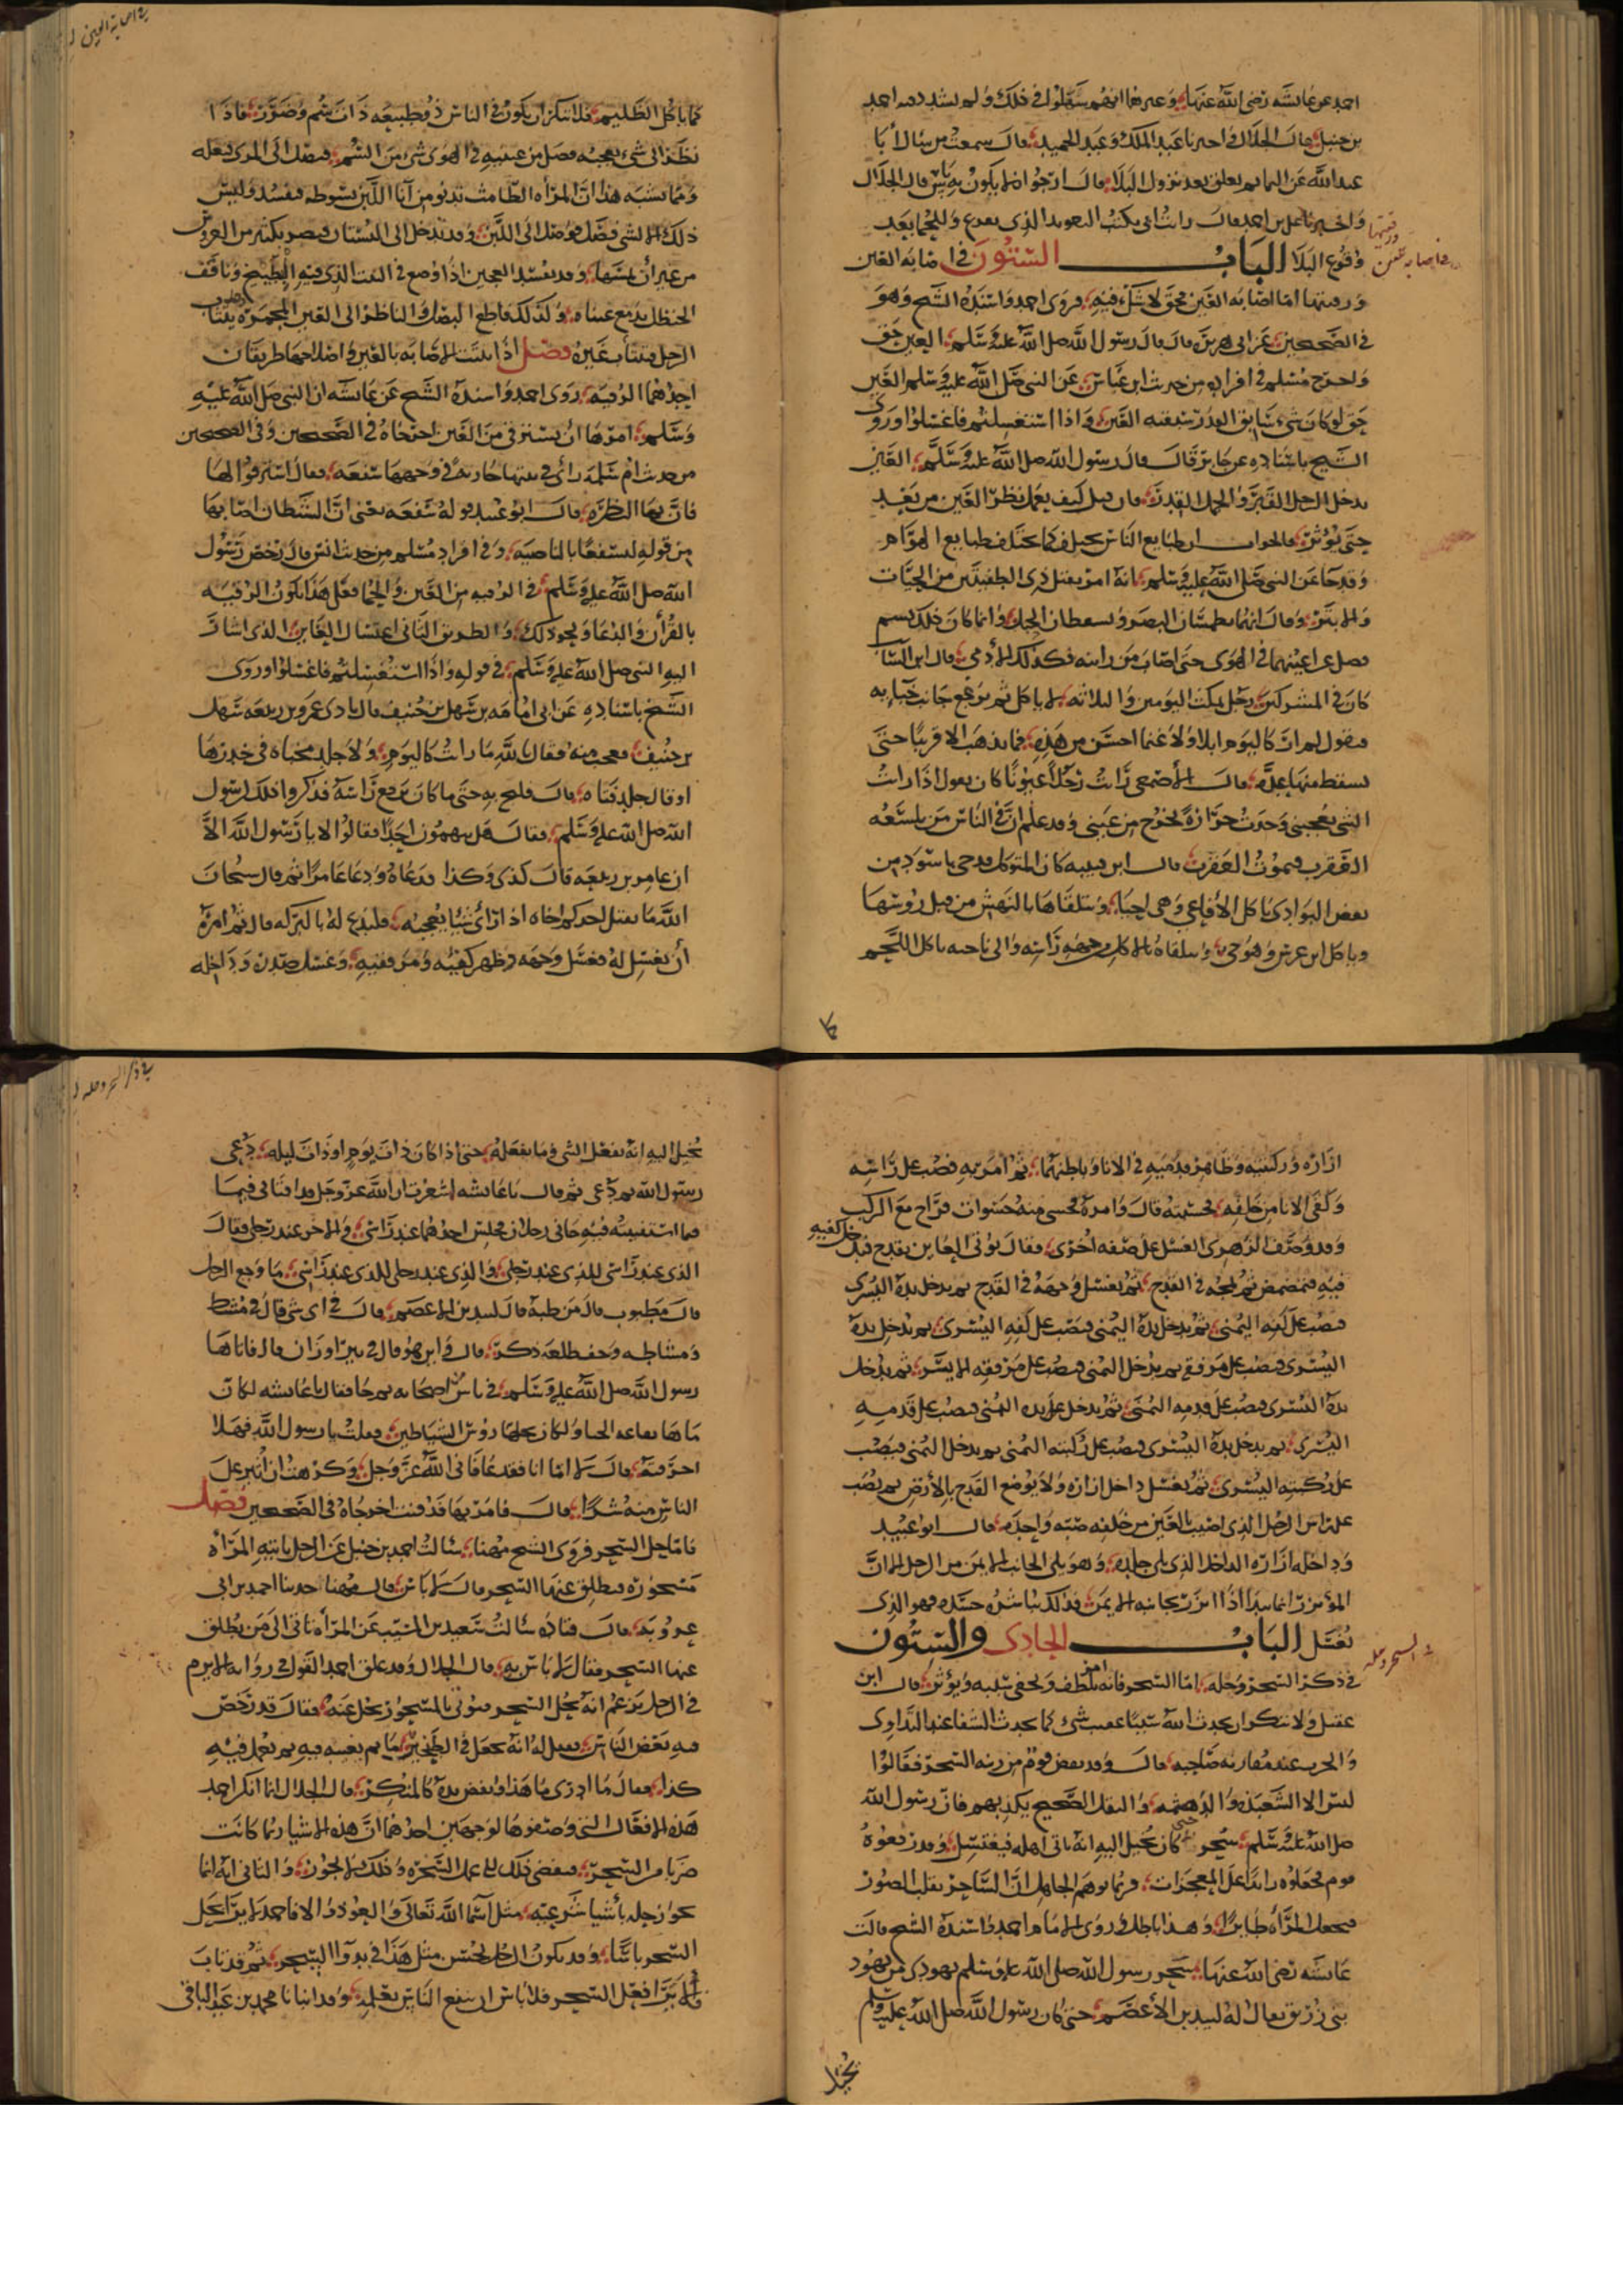 احمد عن عائشه رضي الله عنها وغيرها انهم سهلوا في ذلك ولم يشدد فيه احمد
بن حنبل قال الخلال واخبرنا عبد الملك وعبد الحميد قال سمعت من سال أبا
عبد الله عن التمايم تعلق بعد نزول البلاء قال ارجوا الا يكون به باس قال الخلال
واخبرنا علي بن احمد قال رايت ابي يكتب التعويذ الذي يفزع وللحما بعد
وقوع البلا الباب الستون في اصابه العين
ورقيتها اما اصابه العين فحق لا شك فيه فروى احمد واسنده الشيخ وهو
في الصحيحين عن ابي هريرة قال قال رسول الله صلى الله عليه وسلم العين حق
واخرج مسلم في افراده من حديث ابن عباس عن النبي صلى الله عليه وسلم العين
حق لو كان شيء سابق القدر سبقته العين واذا استغسلتم فاغسلوا وروى
الشيخ باسناده عن جابر قال قال رسول الله صلى الله عليه وسلم العين
تدخل الرجل القبر والجمل القدر فان قيل كيف يعمل نظر العين من بعد
حتى يؤثر فالجواب ان طبايع الناس تختلف كما تختلف طبايع الهوام
وقد جا عن النبي صلى الله عليه وسلم انه امر بقتل ذي الطفيتين من الحيات
والابتر وقال انهما يطمسان البصر ويسقطان الحبل وانما كان ذلك بسم
فصل عن اعينهما في الهوى حتى اصاب من راينه فكذلك الادمي قال ابن السايب
كان في المشركين رجل يمكث اليومين والثلاثه لا ياكل ثم يرفع جانب خبايه
فيقول لم ار كاليوم ابلا ولا غنما احسن من هذه فما تذهب الا قريبا حتى
يسقط منها عدة قال الأصمعي رايت رجلا عيونا كان يقول اذا رايت
الشي يعجبني وجدت حرارة تخرج من عيني وقد علم ان في الناس من تلسعه
العقرب فيموت العقرب قال ابن قتيبه كان المتوكل قد جي باسود من
بعض البوادي ياكل الأفاعي وهي احيا ويتلقاها بالنهش من قبل روسها
وياكل ابن عرس وهو حي ويتلقاه بالاكل من جهه راسه والى ناحيه ياكل اللحم
كما ياكل الظليم فلا تنكر ان يكون في الناس ذو طبيعه ذات سم وضرر فاذا
نظر الى شي يعجبه فصل من عينيه في الهوى شي من السم فيصل الى المرى فيعله
ومما يشبه هذا ان المراه الطامث تدنو من انا اللبن لتسوطه فيفسد وليس
ذلك الا لشي فصل فوصل الى اللبن وقد تدخل الى البستان فيضر بكثير من الغروس
من غير أن تمسها وقد يفسد العجين اذا وضع في البيت الذي فيه البطيخ وناقف
الحنظل تدمع عيناه وكذلك قاطع البصل والناظر الى العين المحمره وقد يتثاب
الرجل فيتثاب غيره فصل اذا ثبتت الاصابه بالعين فاصلاحها طريقان
احدهما الرقيه روى احمد واسنده الشيخ عن عايشه ان النبي صلى الله عليه
وسلم امرها ان تسترقي من العين اخرجاه في الصحيحين وفي الصحيحين
من حديث ام سلمه راى في بيتها جارية في وجهها سفعه فقال استرقوا لها
فان بها النظرة قال ابو عبيد قوله سفعه يعني ان الشيطان اصابها
من قوله لنسفعا بالناصيه وفي افراد مسلم من حديث انس قال رخص رسول
الله صلى الله عليه وسلم في الرقيه من العين والحما فعلى هذا تكون الرقيه
بالقرأن والدعا ونحو ذلك والطريق الثاني اغتسال العاين الذي اشار
اليه النبي صلى الله عليه وسلم في قوله واذا استغسلتم فاغسلوا وروى
الشيخ باسناده عن ابي امامه بن سهل بن حنيف قال راى عامر بن ربيعه سهل
بن حنيف فعجب منه فقال تالله ما رايت كاليوم ولا جلد مخباه في خدرها
او قال جلد فتاه قال فلبج به حتى ما كان يرفع راسه فذكروا ذلك لرسول
الله صلى الله عليه وسلم فقال هل تتهمون احدا فقالوا لا يا رسول الله الا
ان عامر بن ربيعه قال كذى وكذا فدعاه ودعا عامرا ثم قال سبحان
الله ما يقتل احدكم اخاه اذا رأى شيئا يعجبه فليدع له بالبركه قال ثم امره
أن يغسل له فغسل وجهه وظهر كفيه ومرفقيه وغسل صدره وداخله
ازاره وركبتيه وظاهر قدميه في الانا وباطنهما ثم امر به فصب على راسه
وكفى الانا من خلفه قال وامره فحسى منه حسوات فراح مع الركب
وقد وصف الزهري الغسل على صفه اخرى فقال يؤتى العاين بقدح فيدخل كفيه
فيه فيتمضمض ثم يمجه في القدح ثم يغسل وجهه في القدح ثم يدخل يده اليسرى
فيصب على كفه اليمنى ثم يدخل يده اليمنى فيصب على كفه اليسرى ثم يدخل يده
اليسرى فيصب على مرفقه ثم يدخل اليمنى فيصب على مرفقه الايسر ثم يدخل
يده اليسرى فيصب على قدمه اليمنى ثم يدخل يده اليمنى فيصب على قدمه
اليسرى ثم يدخل يده اليسرى فيصب على ركبته اليمنى ثم يدخل اليمنى فيصب
على ركبته اليسرى ثم يغسل داخل ازاره ولا يوضع القدح بالأرض ثم يصب
على راس الرجل الذي اصيب بالعين من خلفه صبه واحدة قال ابو عبيد
وداخله ازاره الداخل الذي يلي جلده وهو يلي الجانب الايمن من الرجل لان
المؤتزر انما يبدأ اذا ائتزر بجانبه الايمن فذلك يباشر جسده فهو الذي
يغسل الباب الحادي والستون
في ذكر السحر وحله اما السحر فانه امر يلطف ويخفي سببه ويؤثر قال ابن
عقيل ولا تنكر ان يحدث الله سببا عقيب شي كما يحدث الشفا عند التداوي
والحرب عند مقاربه صاحبه قال وقد بعض قوم مزيه السحر فقالوا
ليس الا الشعبذه والدهشه والنقل الصحيح يكذبهم فان رسول الله
صلى الله عليه وسلم سحر حتى كان يخيل اليه انه ياتي اهله فيغتسل وقد رفعوه
قوم فجعلوه زايدا على المعجزات فربما توهم الجاهل ان الساحر يقلب الصور
فيجعل المراه طايرا وهذا باطل روى الامام احمد واسنده الشيخ قالت
عائشه رضي الله عنها سحر رسول الله صلى الله عليه وسلم يهودي من يهود
بني زريق يقال له لبيد بن الأعصم حتى كان رسول الله صلى الله عليه وسلم
يخيل
يخيل اليه انه يفعل الشي وما يفعله حتى اذا كان ذات يوم او ذات ليله دعى
رسول الله ثم دعى ثم قال يا عايشه اشعرت ان الله عز وجل قد افتاني فيما
فيما استفتيته فيه جاني رجلان فجلس احدهما عند راسي والاخر عند رجلي فقال
الذي عند راسي للذي عند رجلي والذي عند رجلي للذي عند راسي ما وجع الرجل
قال مطبوب قال من طبه قال لبيد بن الاعصم قال في اي شي قال في مشط
ومشاطه وجف طلعه ذكر قال واين هو قال في بير اوران قال فاتاها
رسول الله صلى الله عليه وسلم في ناس من اصحابه ثم جا فقال يا عايشه لكان
ماها نقاعه الحنا ولكان نخلها رؤس الشياطين فقلت يا رسول الله فهلا
احرقته قال لا اما انا فقد عافاني الله عز وجل وكرهت ان أثير على
الناس منه شرا قال فامر بها فدفنت اخرجاه في الصحيحين فصل
فاما حل السحر فروى الشيخ مهنا سالت احمد بن حنبل عن الرجل ياتيه المراه
مسحوره فيطلق عنها السحر قال لا باس قال مهنا حدثنا احمد بن ابي
عروبه قال قتاده سالت سعيد بن المسيب عن المراه تاتي الى من يطلق
عنها السحر فقال لا باس به قال الخلال وقد علق احمد القول في روايه الاثرم
في الرجل يزعم انه يحل السحر فيؤتى بالمسحور فيحل عنه فقال قد رخص
فيه بعض الناس فقيل له انه يجعل في الطنجير ما ثم يغيب فيه ثم يعمل فيه
كذا فقال ما ادرى ما هذا ونفض يده كالمنكر قال الخلال انما انكر احمد
هذه الافعال التي وصفوها لوجهين احدهما ان هذه الاشيا ربما كانت
ضربا من السحر فيفضي ذلك الى عمل السحره وذلك لا يجوز والثاني انه انما
يجوز حله بأشيا شرعيه مثل اسما الله تعالى والعوذ والا فاحمد لا يرى بحل
السحر باسا وقد يكون الرجل يحسن مثل هذا في بدو السحر ثم قد تاب
فاذا برا فعل السحر فلا باس ان ينفع الناس بعلمه وقد انبانا محمد بن عبد الباقي